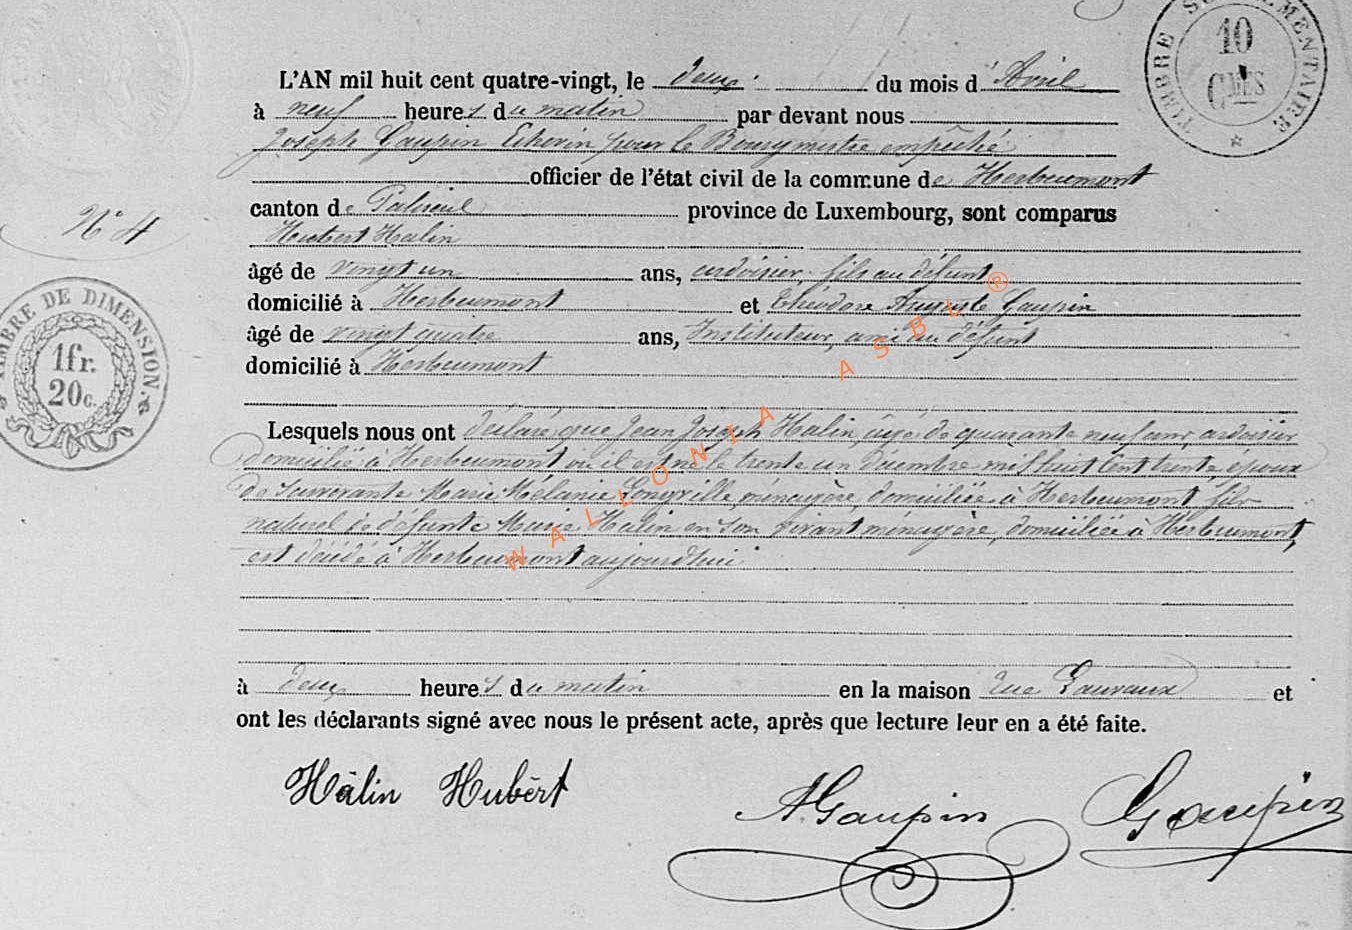 TIMBRE SUPPLÉMENTAIRE
10
Cmes
L'AN mil huit cent quatre-vingt, le deux du mois d'Avril
à neuf heures du matin par devant nous
Joseph Gaupin Echevin pour le Bourgmestre empêché
officier de l'état civil de la commune de Herbeumont
canton de Paliseul province de Luxembourg, sont comparus
N° 4
Hubert Halin
âgé de vingt un ans, ardoisier fils au défunt
domicilié à Herbeumont et Théodore Auguste Gaupin
âgé de vingt quatre ans, Instituteur, ami au défunt
domicilié à Herbeumont
TIMBRE DE DIMENSION.
1fr.
20c.
Lesquels nous ont déclaré que Jean Joseph Halin âgé de quarante neuf ans, ardoisier
domicilié à Herbeumont où il est né le trente un décembre mil huit cent trente époux
de survivante Marie Mélanie Longville, ménagère, domiciliée à Herbeumont, fils
naturel de défunte Marie Halin en son vivant ménagère, domiciliée à Herbeumont,
est décédé à Herbeumont aujourd'hui
à deux heures du matin en la maison rue et
ont les déclarants signé avec nous le présent acte, après que lecture leur en a été faite.
Hâlin Hubèrt
A. Gaupin
Gaupin
WALLONIA ASBL ®